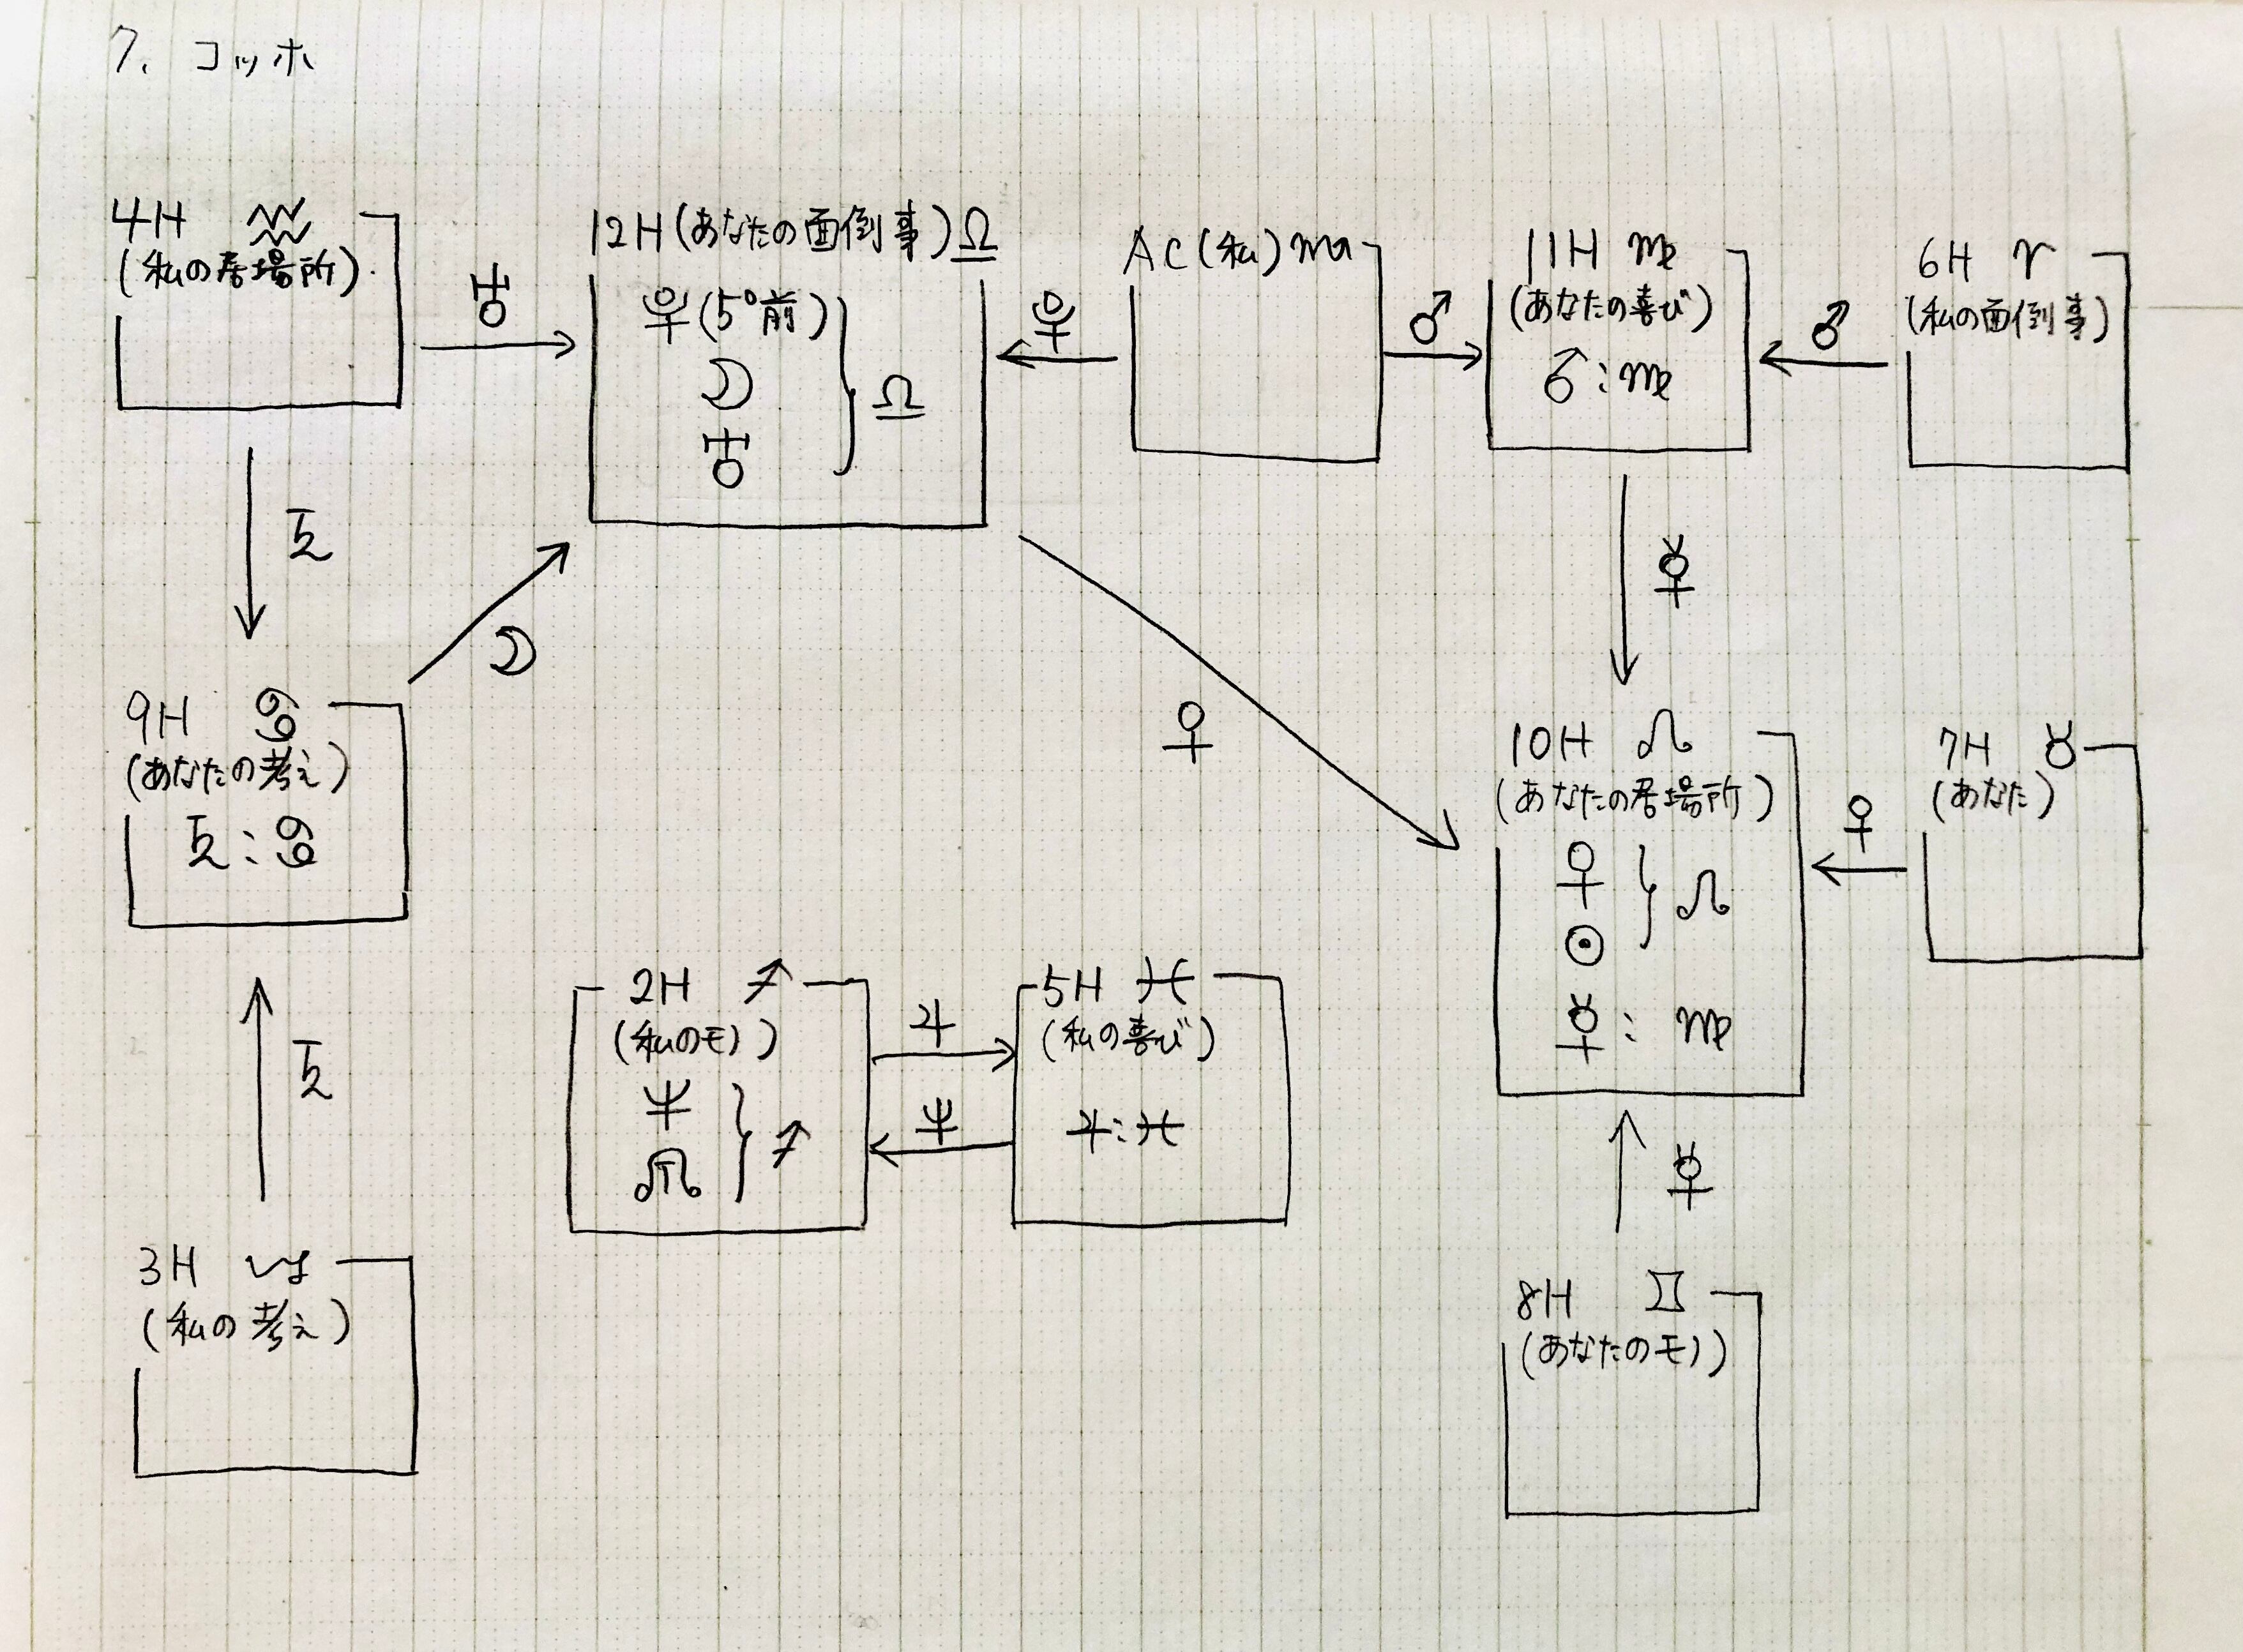 7. コッホ
4H ♒
(私の居場所)
♅
12H(あなたの面倒事)♎
⯓(5°前)
☽ ♎
♅
⯓
AC(私)♏
♂
11H ♍
(あなたの喜び)
♂:♍
♂
6H ♈
(私の面倒事)
♄
☽
♀
☿
9H ♋
(あなたの考え)
♄:♋
10H ♌
(あなたの居場所)
♀
☉ ♌
☿: ♍
♀
7H ♉
(あなた)
♄
2H ♐
(私のモノ)
♆
☊ ♐
♃
♆
5H ♓
(私の喜び)
♃:♓
☿
3H ♑
(私の考え)
8H ♊
(あなたのモノ)